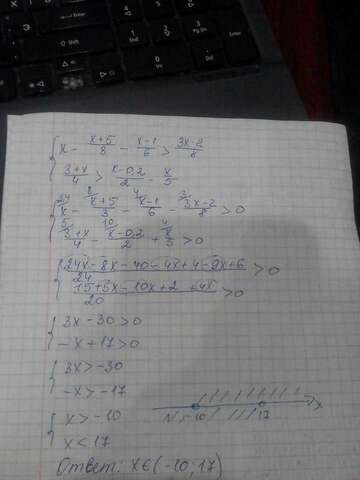 { x - \frac{x+5}{3} - \frac{x-1}{6} > \frac{3x-2}{8}
\frac{3+x}{4} > \frac{x-0,2}{2} - \frac{x}{5}
{ \overset{24}{x} - \overset{8}{\frac{x+5}{3}} - \overset{4}{\frac{x-1}{6}} - \overset{3}{\frac{3x-2}{8}} > 0
\overset{5}{\frac{3+x}{4}} - \overset{10}{\frac{x-0,2}{2}} + \overset{4}{\frac{x}{5}} > 0
{ \frac{24x-8x-40-4x+4-9x+6}{24} > 0
\frac{15+5x-10x+2+4x}{20} > 0
{ 3x-30>0
-x+17>0
{ 3x>-30
-x>-17
{ x>-10
x<17
-10 17 x
Ответ: x∈(-10;17)